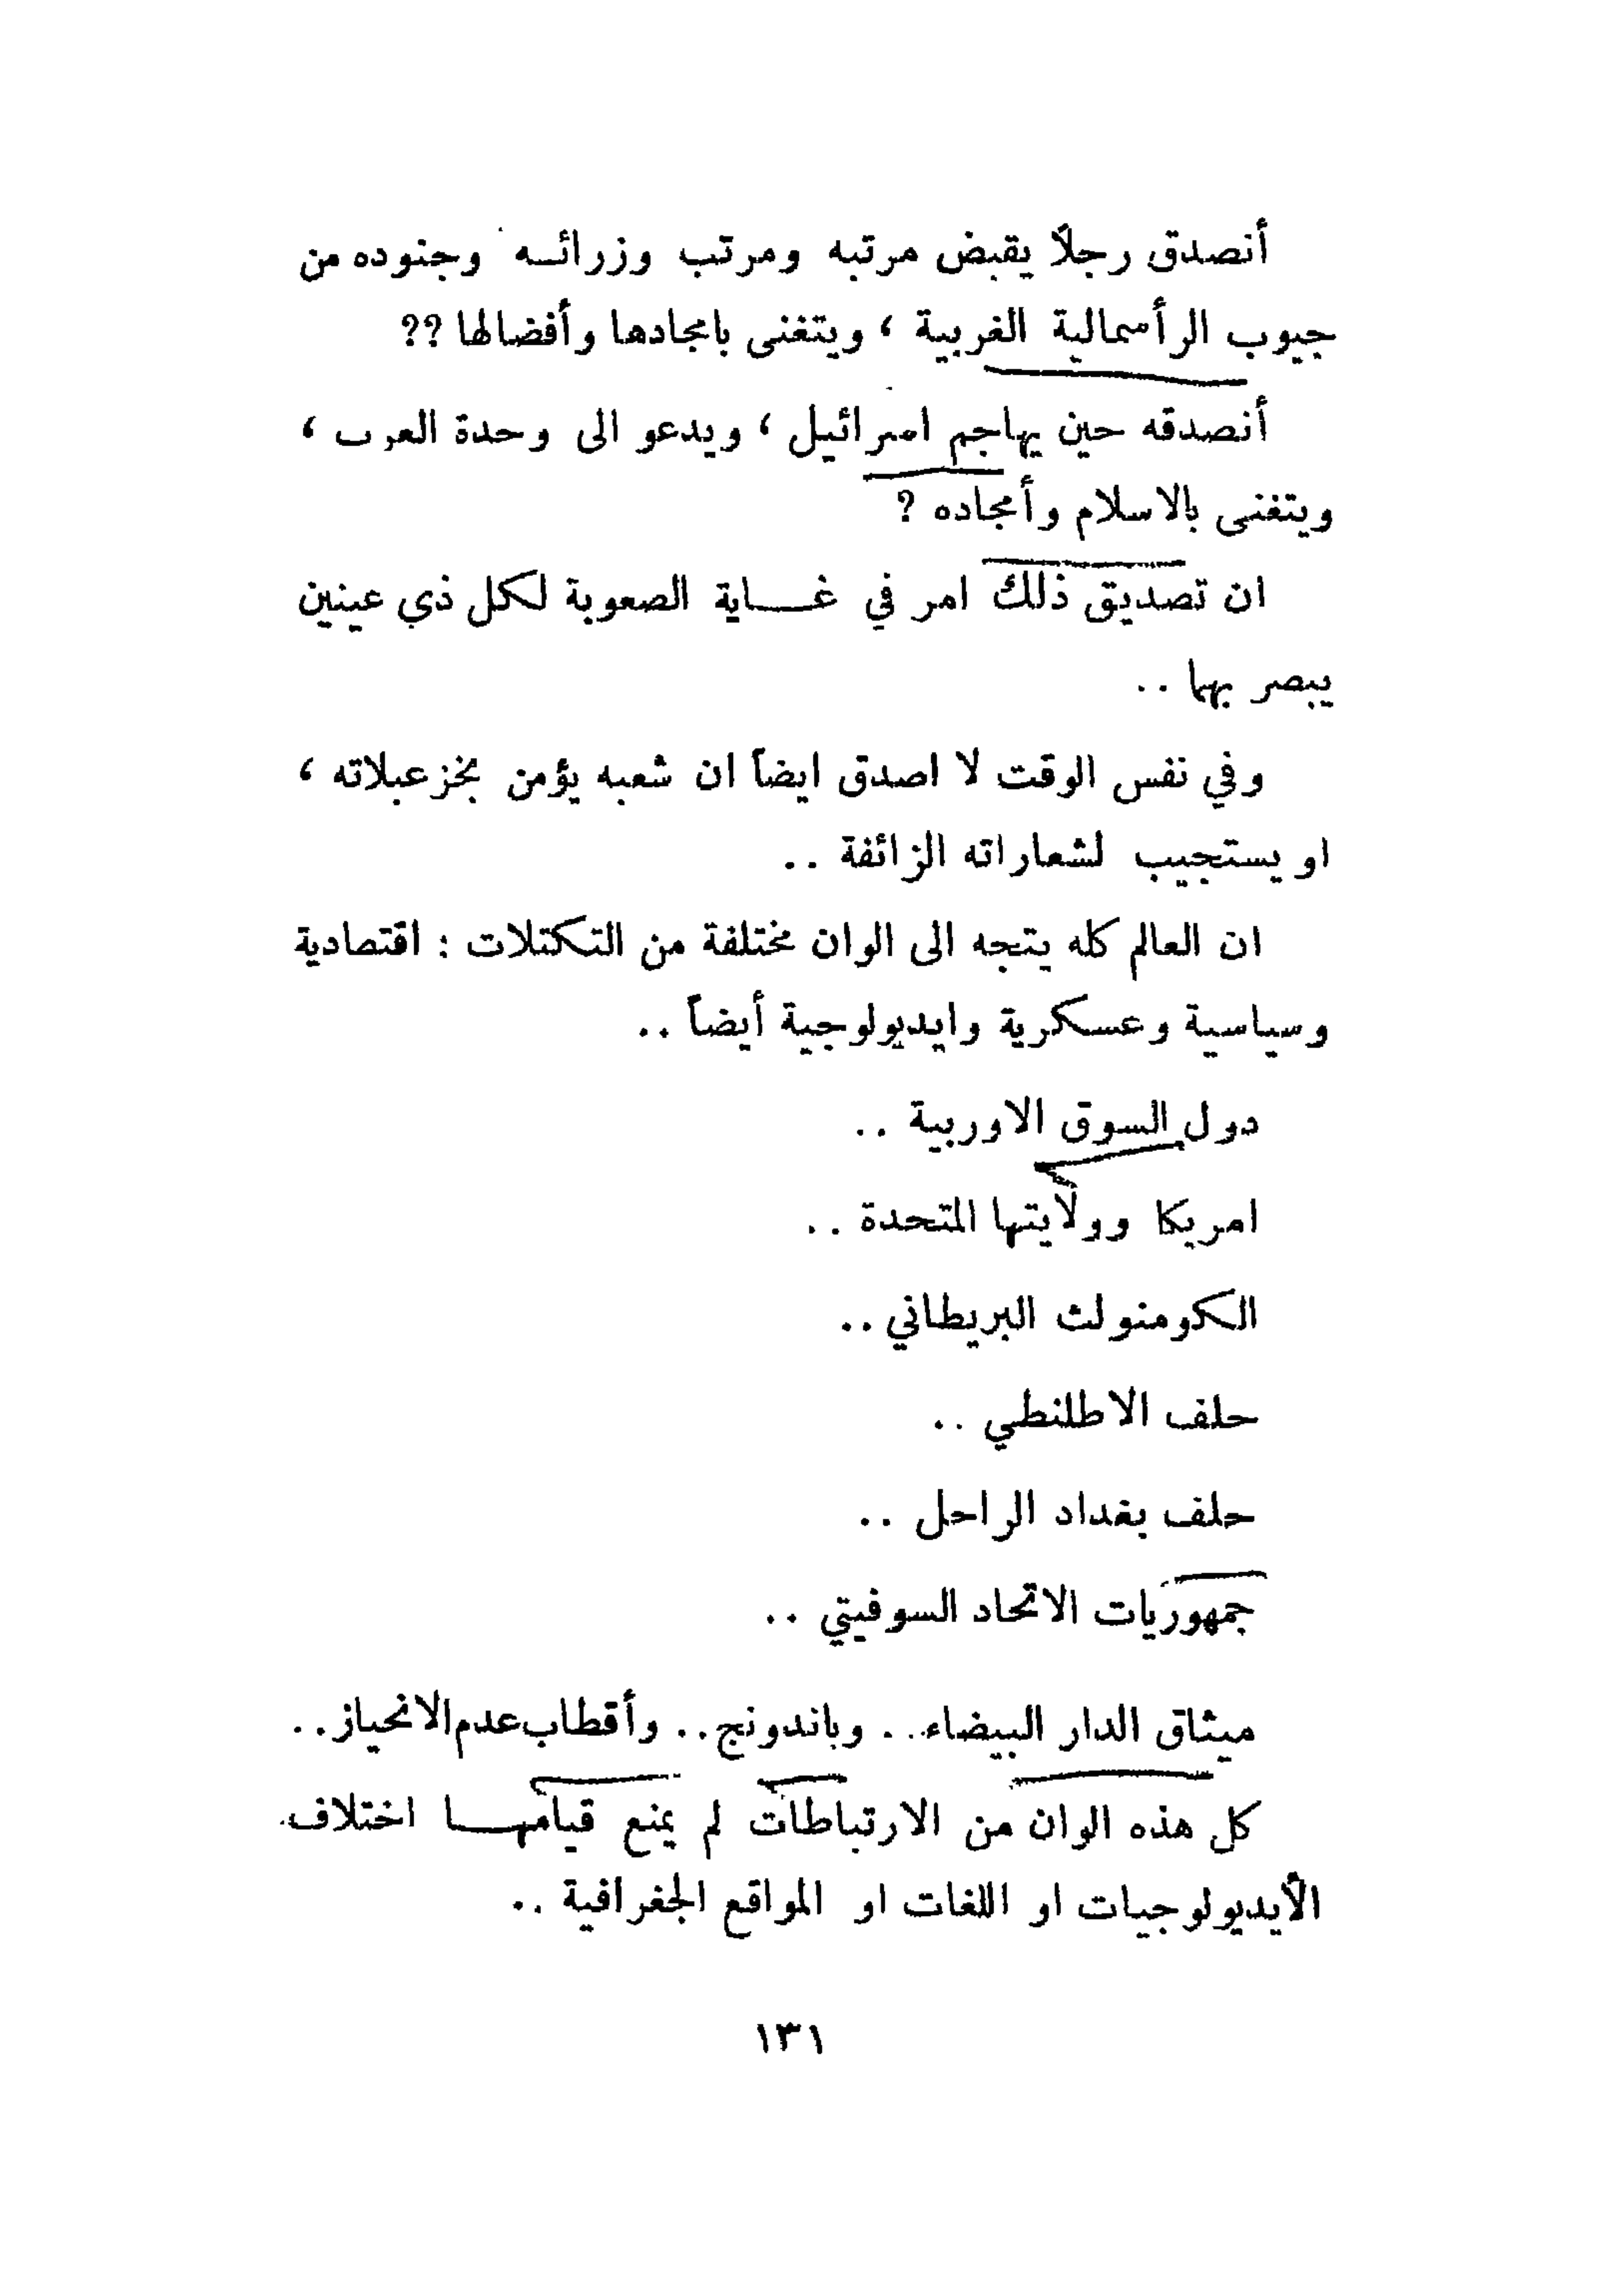 أنصدق رجلاً يقبض مرتبه ومرتب وزرائه وجنوده من
جيوب الرأسمالية الغربية ، ويتغنى بامجادها وأفضالها ??
أنصدقه حين يهاجم اسرائيل ، ويدعو الى وحدة العرب ،
ويتغنى بالاسلام وأمجاده ?
ان تصديق ذلك امر في غاية الصعوبة لكل ذي عينين
يبصر بهما ..
وفي نفس الوقت لا اصدق ايضاً ان شعبه يؤمن بخزعبلاته ،
او يستجيب لشعاراته الزائفة ..
ان العالم كله يتجه الى الوان مختلفة من التكتلات : اقتصادية
وسياسية وعسكرية وايديولوجية أيضاً ..
دول السوق الاوربية ..
امريكا وولايتها المتحدة ..
الكومنولث البريطاني ..
حلف الاطلنطي ..
حلف بغداد الراحل ..
جمهوريات الاتحاد السوفيتي ..
ميثاق الدار البيضاء .. وباندونج .. وأقطاب عدم الانحياز ..
كل هذه الوان من الارتباطات لم يمنع قيامها اختلاف
الأيديولوجيات او اللغات او المواقع الجغرافية ..
١٣١